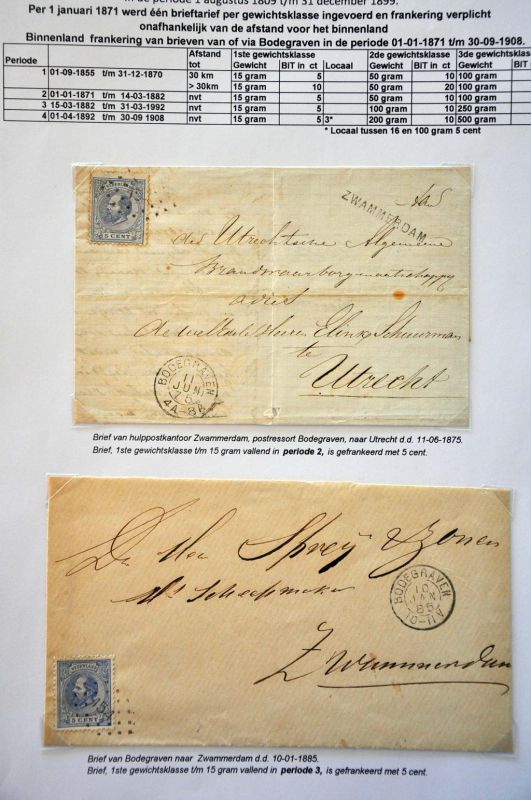 in de periode 1 augustus 1809 t/m 31 december 1899.
Per 1 januari 1871 werd één brieftarief per gewichtsklasse ingevoerd en frankering verplicht
onafhankelijk van de afstand voor het binnenland
Binnenland frankering van brieven van of via Bodegraven in de periode 01-01-1871 t/m 30-09-1908.
Periode Afstand 1ste gewichtsklasse 2de gewichtsklasse 3de gewichtsk
tot Gewicht BiT in ct Locaal Gewicht BiT in ct Gewicht BiT
1 01-09-1855 t/m 31-12-1870 30 km 15 gram 5 50 gram 10 100 gram
> 30km 15 gram 10 50 gram 20 100 gram
2 01-01-1871 t/m 14-03-1882 nvt 15 gram 5 50 gram 10 100 gram
3 15-03-1882 t/m 31-03-1992 nvt 15 gram 5 100 gram 10 250 gram
4 01-04-1892 t/m 30-09 1908 nvt 15 gram 5 3* 200 gram 10 500 gram
* Locaal tussen 16 en 100 gram 5 cent
NEDERLAND
5 CENT
ZWAMMERDAM
Aan
de Utrechtsche Algemeene
Brandwaarborgmaatschappij
adres
Elink Schuurman
te
Utrecht
BODEGRAVEN
11
JUN
75
4A-8
Brief van hulppostkantoor Zwammerdam, postressort Bodegraven, naar Utrecht d.d. 11-06-1875.
Brief, 1ste gewichtsklasse t/m 15 gram vallend in periode 2, is gefrankeerd met 5 cent.
De Heer Spreij & Zonen
Mr Scheepmaker
Zwammerdam
BODEGRAVEN
10
JAN
85
10-11V
NEDERLAND
5 CENT
Brief van Bodegraven naar Zwammerdam d.d. 10-01-1885.
Brief, 1ste gewichtsklasse t/m 15 gram vallend in periode 3, is gefrankeerd met 5 cent.